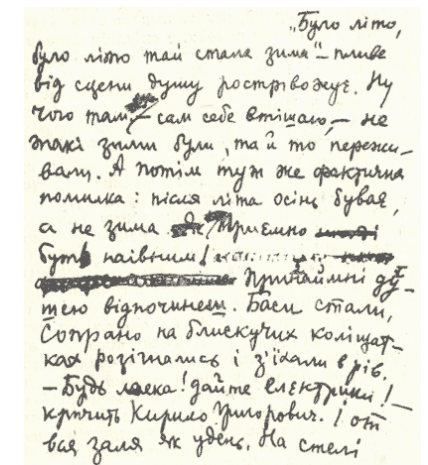 „Було літо,
було літо тай стала зима“ – пливе
від сцени душу розтрівожує. Ну
чого там, – сам себе втішаю, – не
такі зими були, та й то пережи-
вали. А потім тут же фактична
помилка: після літа осінь буває,
а не зима. Приємно
буть наївним!
Принаймні ду-
шею відпочинеш. Баси стали,
сопрано на блискучих коліщат-
ках розігнались і з’їхали в рів.
– Будь ласка! дайте електрики! –
кричить Кирило Григорович. І от
вся заля як удень. На стелі